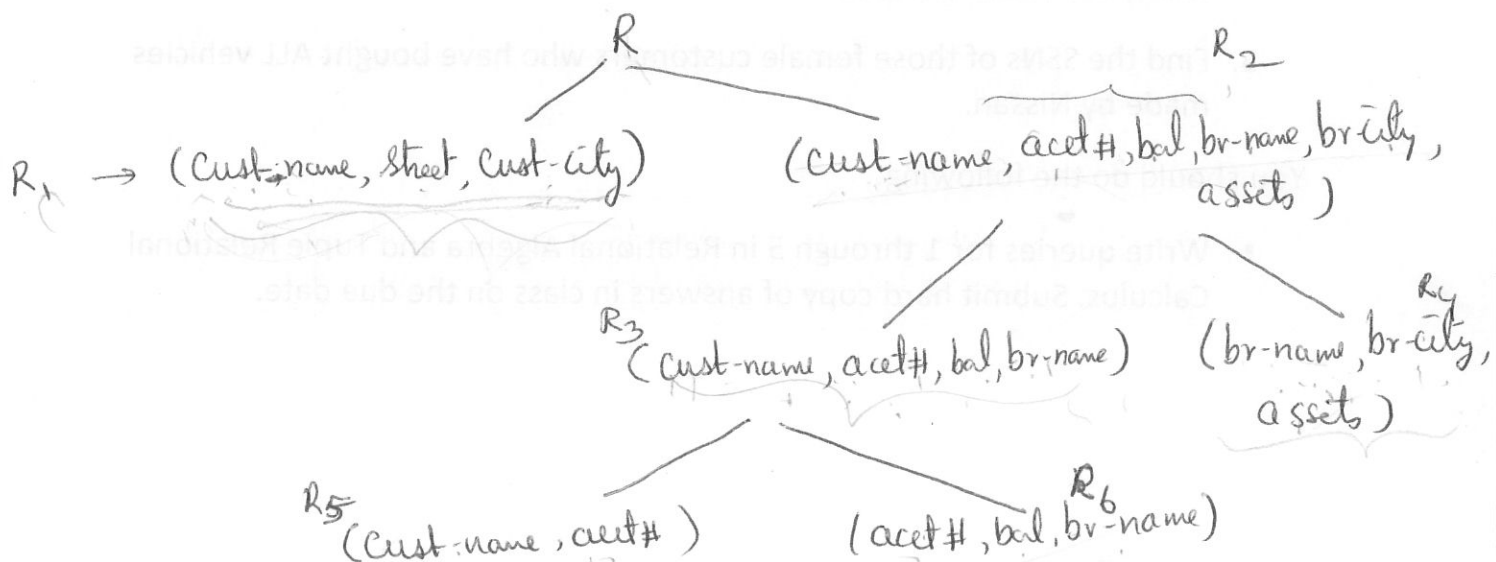 R
R2
R1 → (Cust-name, street, Cust-city)
(cust-name, acct#, bal, br-name, br-city,
assets)
R3
(cust-name, acct#, bal, br-name)
R4
(br-name, br-city,
assets)
R5
(Cust-name, acct#)
R6
(acct#, bal, br-name)
Find the SSNs of those female customers who have bought ALL vehicles
made by Nissan.
You should do the following.
Write queries for 1 through 5 in Relational Algebra and Tuple Relational
Calculus. Submit hard copy of answers in class on the due date.